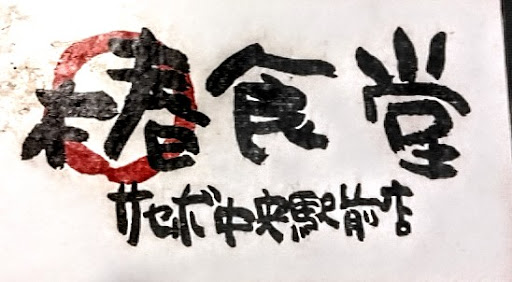 椿食堂
サセボ中央駅前店